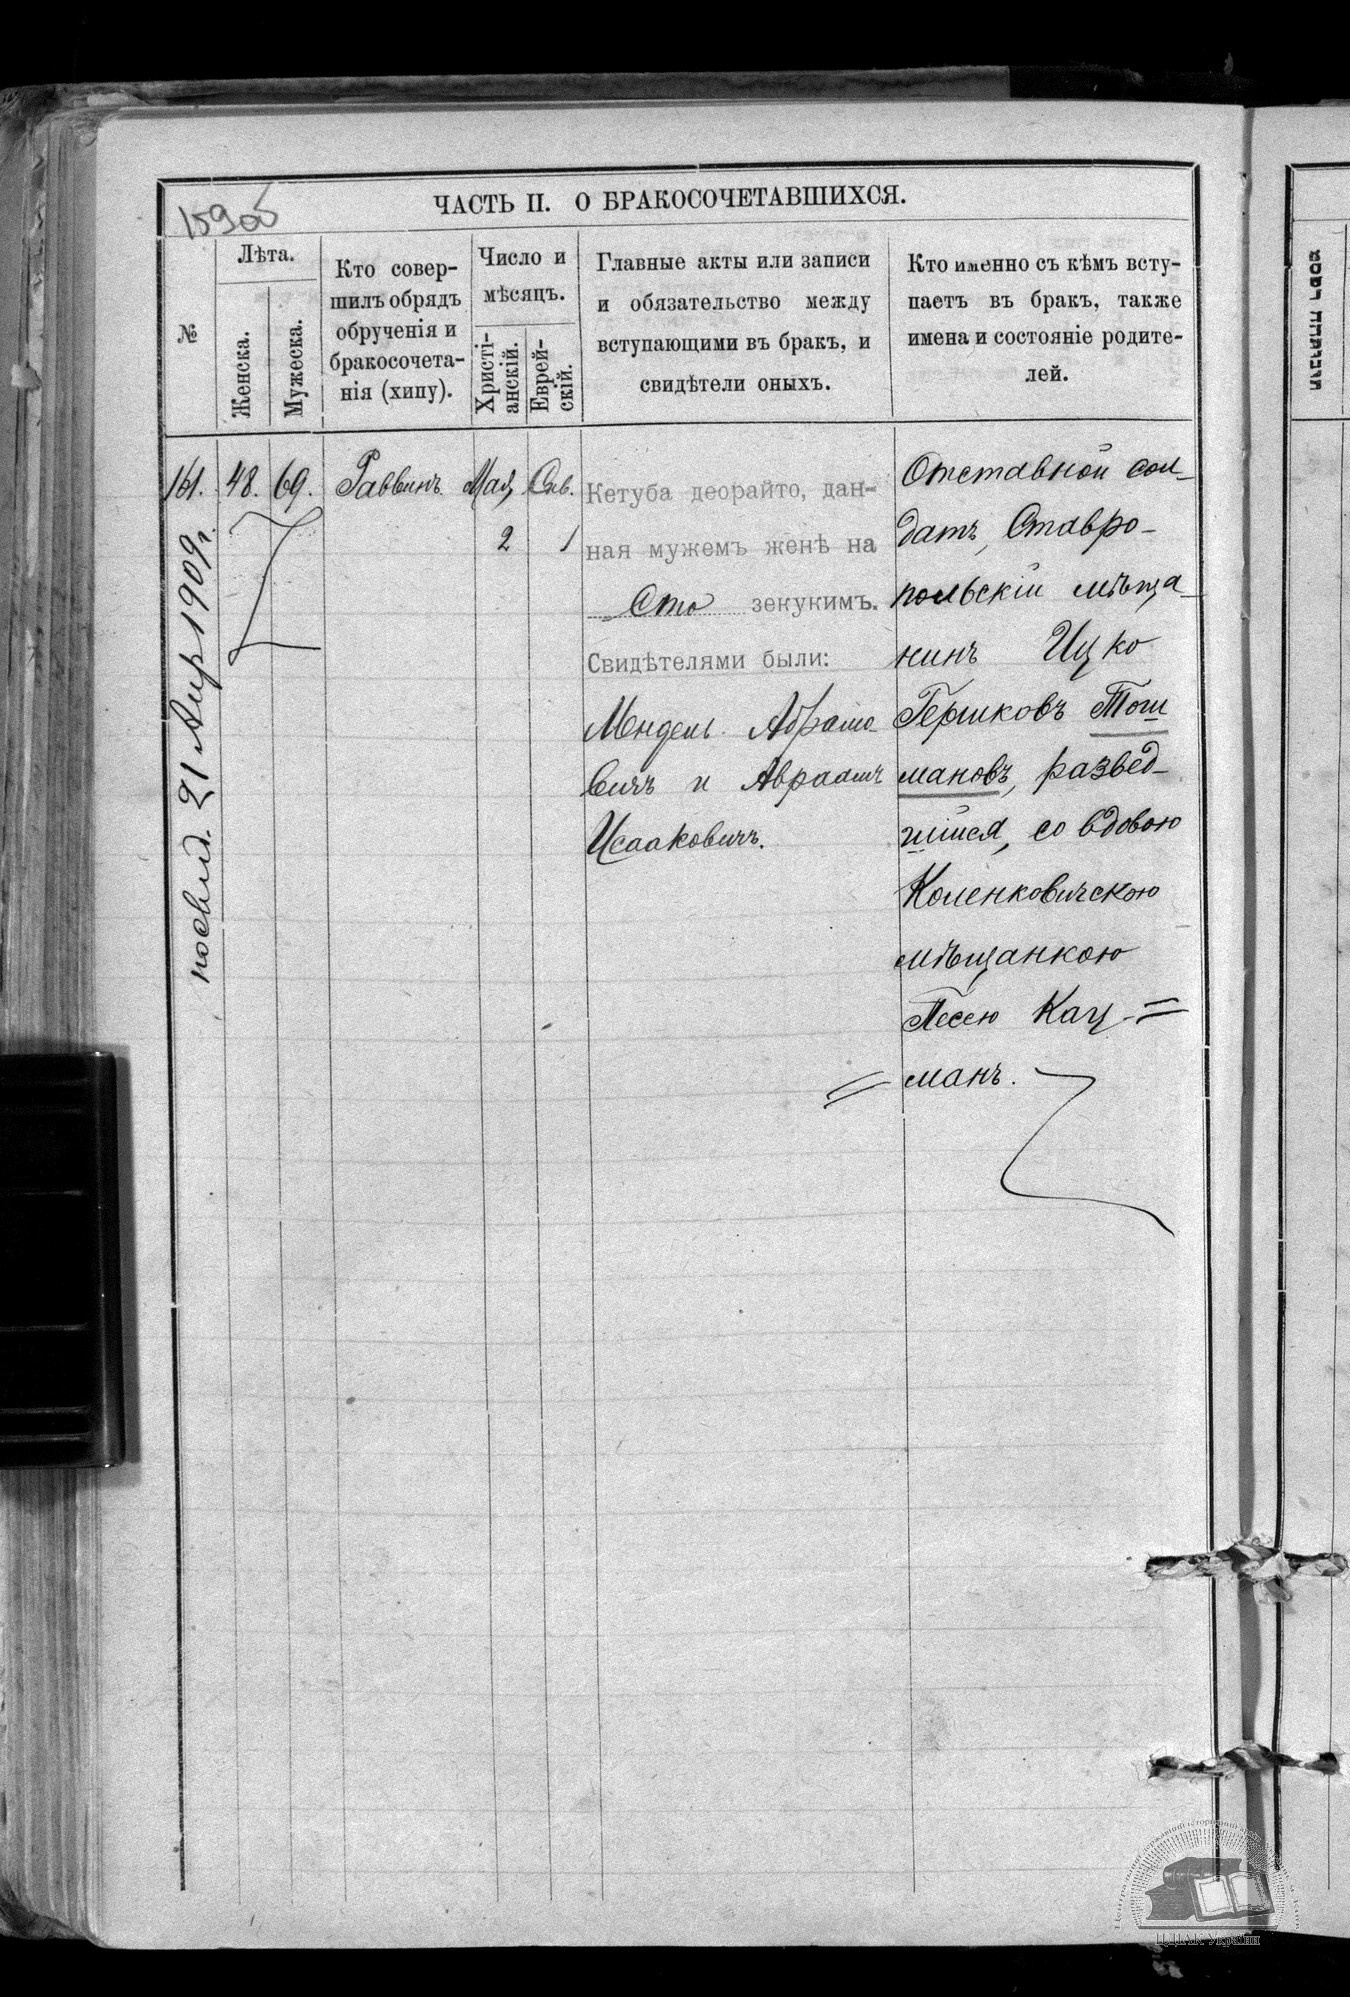 159об
ЧАСТЬ II. О БРАКОСОЧЕТАВШИХСЯ.
№
Лѣта.
Женска.
Мужеска.
Кто совер-
шилъ обрядъ
обрученія и
бракосочета-
нія (хипу).
Число и
мѣсяцъ.
Христі-
анскій.
Еврей-
скій.
Главные акты или записи
и обязательство между
вступающими въ бракъ, и
свидѣтели оныхъ.
Кто именно съ кѣмъ всту-
паетъ въ бракъ, также
имена и состояніе родите-
лей.
161. 48. 69. Раввинъ. Мая, Сив.
2 1
Кетуба деорайто, дан-
ная мужемъ женѣ на
Сто зекукимъ.
Свидѣтелями были:
Мендель Абрамо-
вичъ и Авраамъ
Исааковичъ.
Отставной сол-
датъ, Ставро-
польскій мѣща-
нинъ Ицко
Гершковъ Тош
мановъ, развед-
шійся, со вдовою
Коленковичскою
мѣщанкою
Песею Кац =
= манъ.
21 Апр 1909 г.
ЦДІАК України